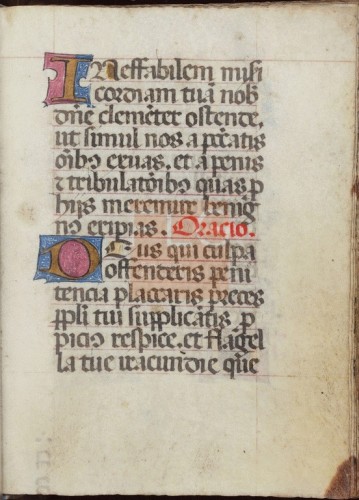 INeffabilem misi
cordiam tuā nob
dn̄e clemēter ostende.
ut simul nos a pc̄catis
om̄ibꝯ exuas. et a penis
⁊ tribulatōibꝯ quas ꝑ
hijs meremur benig
nō eripias. Oracio.
DEus qui culpa
offenderis peni
tencia placaris preces
ppl̄i tui supplicātis. ꝓ
picio respice. et flagel
la tue iracundie que